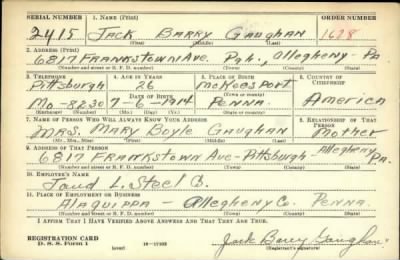 SERIAL NUMBER 1. NAME (Print) ORDER NUMBER
2415 Jack Barry Gaughan 1678
(First) (Middle) (Last)
2. ADDRESS (Print)
6817 Frankstown Ave. Pgh., Allegheny - Pa
(Number and street or R. F. D. number) (Town) (County) (State)
3. TELEPHONE 4. AGE IN YEARS 5. PLACE OF BIRTH 6. COUNTRY OF CITIZENSHIP
Pittsburgh 26 McKeesport
DATE OF BIRTH (Town or county)
Mo-8230 7-6-1914 Penna. America
(Exchange) (Number) (Mo.) (Day) (Yr.) (State or country)
7. NAME OF PERSON WHO WILL ALWAYS KNOW YOUR ADDRESS 8. RELATIONSHIP OF THAT PERSON
Mrs. Mary Boyle Gaughan Mother
(Mr., Mrs., Miss) (First) (Middle) (Last)
9. ADDRESS OF THAT PERSON
6817 Frankstown Ave - Pittsburgh - Allegheny Pa.
(Number and street or R. F. D. number) (Town) (County) (State)
10. EMPLOYER'S NAME
L. Steel
11. PLACE OF EMPLOYMENT OR BUSINESS
Alaquippa - Allegheny Co. Penna.
(Number and street or R. F. D. number) (Town) (County) (State)
I AFFIRM THAT I HAVE VERIFIED ABOVE ANSWERS AND THAT THEY ARE TRUE.
REGISTRATION CARD
D. S. S. Form 1 (over) 16-17105 Jack Barry Gaughan
(Registrant's signature)